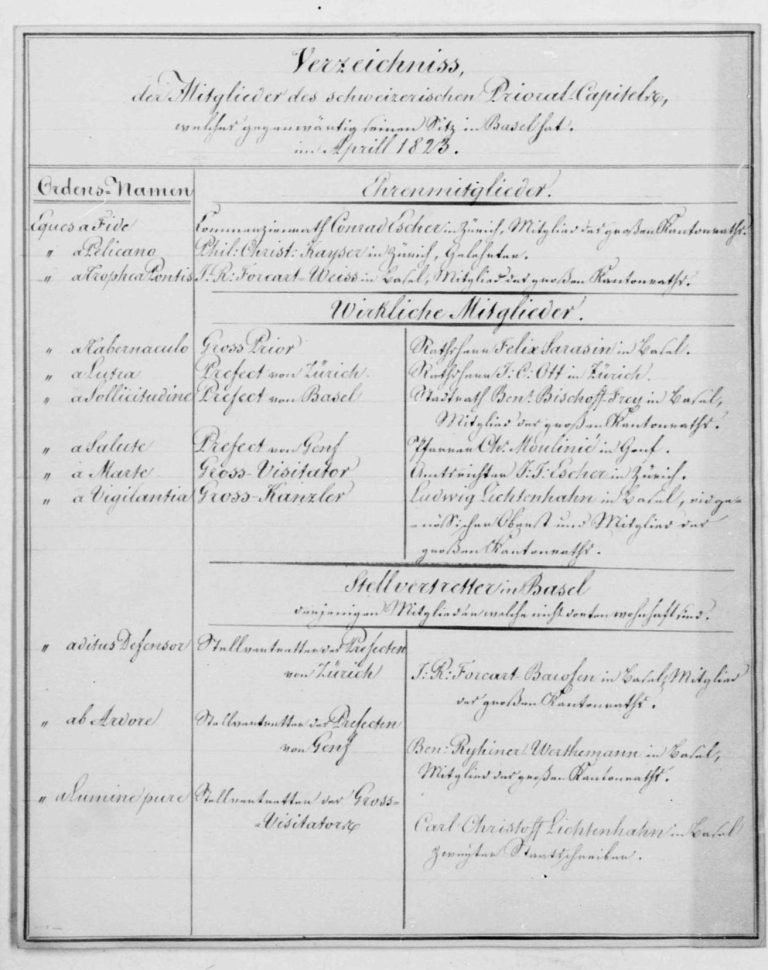 Verzeichniss,
der Mitglieder des schweizerischen Priorat-Capitels,
welches gegenwärtig seinen Sitz in Basel hat.
im Aprill 1823.
Ordens-Namen Ehrenmitglieder.
Eques a Fide Commerzienrath Conrad Escher in Zürich, Mitglied des großen Kantonraths.
" a Pelicano Phil: Christ: Kayser in Zürich, Gelehrter.
" a Trophea Pontis J: R: Forcart-Weiss in Basel, Mitglied des großen Kantonraths.
Wirkliche Mitglieder.
" a Tabernaculo Gross Prior Rathsherr Felix Sarasin in Basel.
" a Lutra Prefect von Zürich Rathsherr J: C: Ott in Zürich.
" a Sollicitudine Prefect von Basel Stadtrath Ben.t Bischoff Frey in Basel,
Mitglied des großen Kantonraths.
" a Salute Prefect von Genf Pfarrer Ch.s Moulinié in Genf.
" à Marte Gross-Visitator Amtsrichter J: J: Escher in Zürich.
" a Vigilantia Gross-Kanzler Ludwig Lichtenhahn in Basel, eidge-
-nössischer Oberst und Mitglied des
großen Kantonraths.
Stellvertretter in Basel
derjenigen Mitglieder welche nicht dorten wohnhaft sind.
" aditus Defensor Stellvertretter des Prefecten
von Zürich J: R: Forcart-Bachofen in Basel, Mitglied
des großen Kantonraths.
" ab Ardore Stellvertretter des Prefecten
von Genf Ben: Ryhiner Werthemann in Basel,
Mitglied des großen Kantonraths.
" a Lumine pure Stellvertretter des Gross-
-Visitators Carl Christoff Lichtenhahn in Basel
zweyter Staatschreiber.